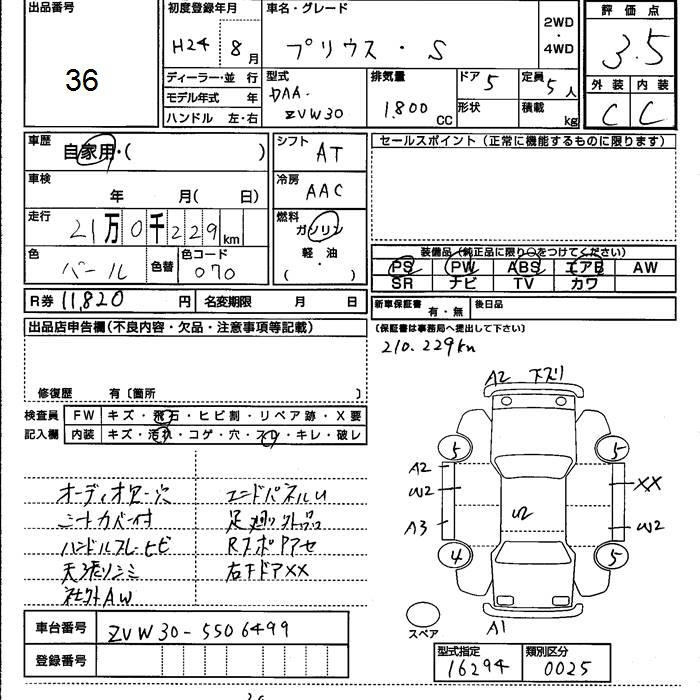 出品番号
36
初度登録年月
H24 8月
車名・グレード
プリウス・S
2WD
・
4WD
評価点
3.5
ディーラー・並行
モデル年式 年
ハンドル 左・右
型式
DAA-
ZVW30
排気量
1.800
CC
ドア 5
形状
定員 5人
積載 kg
外装 内装
C C
車歴
自家用・( )
シフト
AT
セールスポイント (正常に機能するものに限ります)
車検
年 月( 日)
冷房
AAC
走行
21万0千229km
燃料
ガソリン
軽・油
・
( )
色
パール
色替
色コード
070
装備品 (純正品に限り○をつけてください)
PS PW ABS エアB AW
SR ナビ TV カワ
R券 11,820円
名変期限 月 日
新車保証書 有・無
後日品
(保証書は事務局へ提出して下さい)
出品店申告欄(不良内容・欠品・注意事項等記載)
210.229km
修復歴 有〔箇所 〕
検査員
記入欄
FW キズ・飛石・ヒビ割・リペア跡・X要
内装 キズ・汚れ・コゲ・穴・スレ・キレ・破レ
オーディオレス穴
ニートカバー付
ハンドルスレ・ヒビ
天張リシミ
社外AW
エンドパネルU
足廻リ外品
RスポPアセ
右FドアXX
A2 下スリ
5 5
A2
W2
A3
U2
XX
W2
4 5
スペア
A1
車台番号
ZVW30-5506499
登録番号
型式指定
16294
類別区分
0025